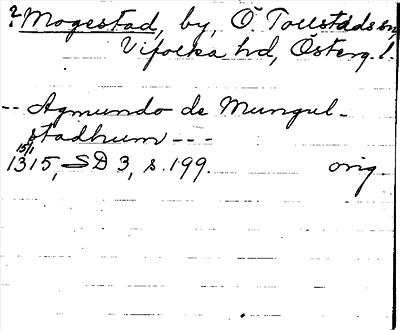 ? Mogestad, by, Ö. Tollstads sn,
Vifolka hd, Österg. l.
-- Agmundo de Mungul-
stadhum ---
15/1
1315, SD 3, s. 199. orig.